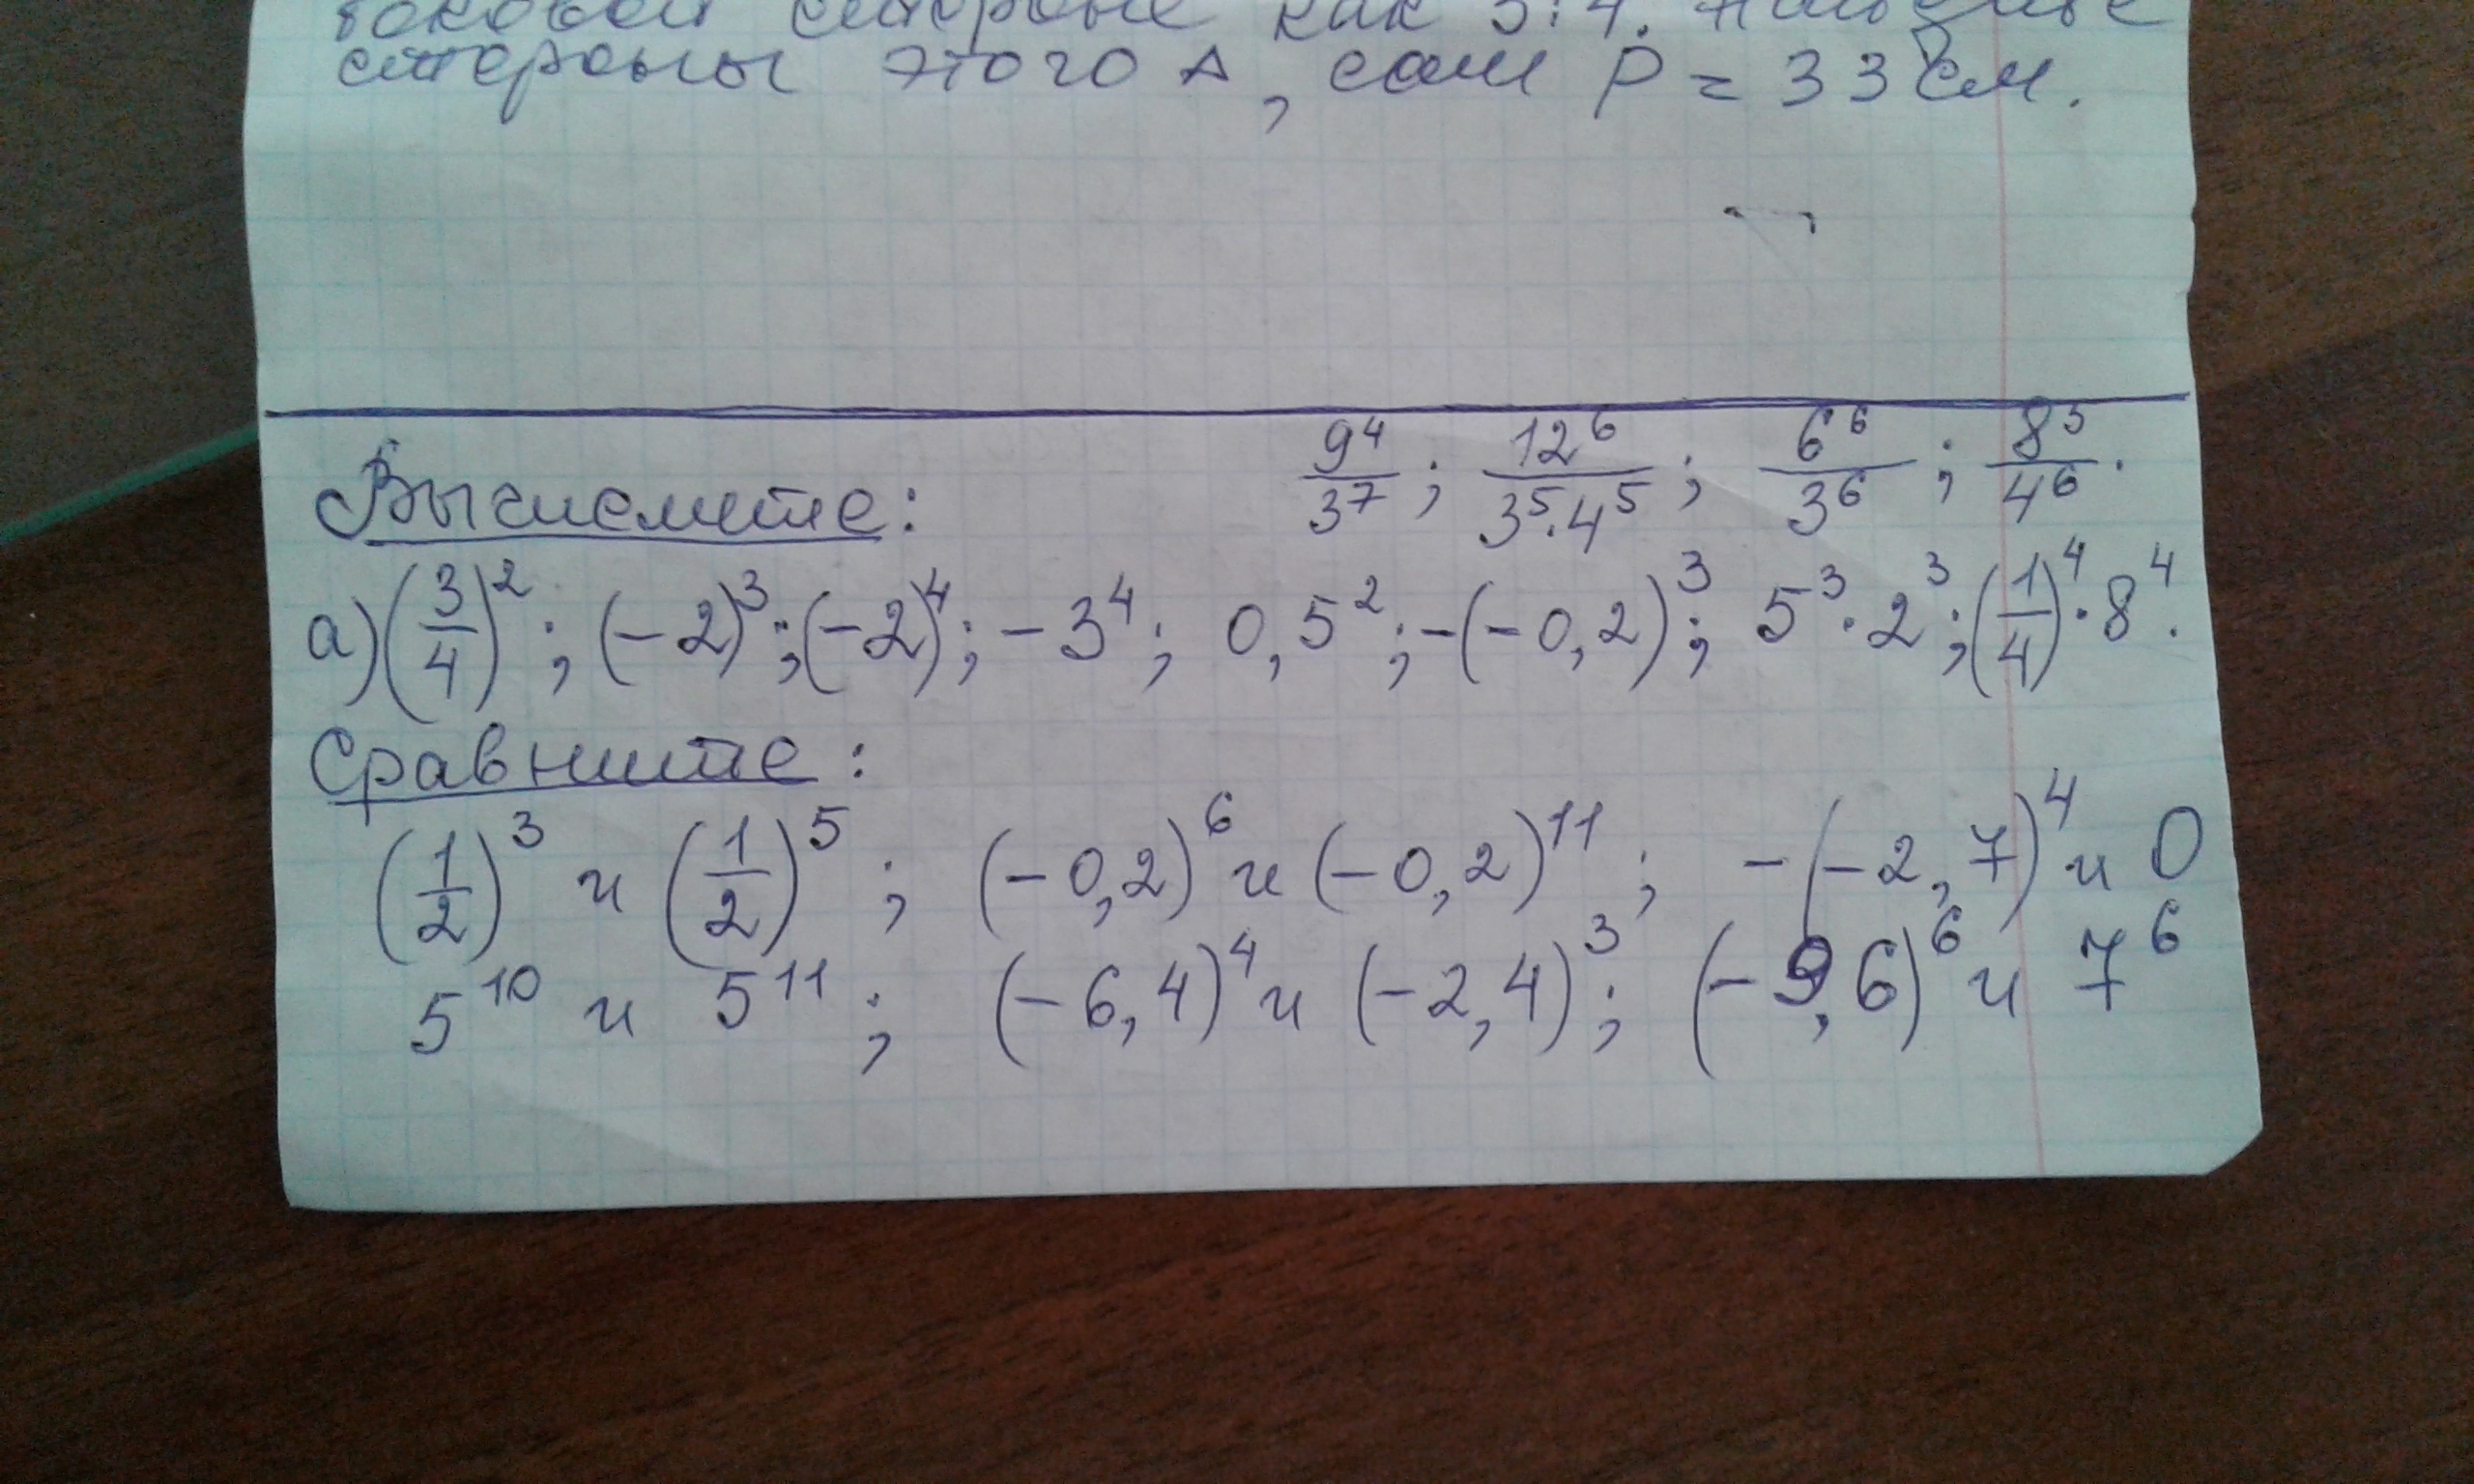 боковой стороне как 3:4. Найдите
стороны этого Δ, если P = 33 см.
Вычислите: 9⁴/3⁷; 12⁶/(3⁵·4⁵); 6⁶/3⁶; 8⁵/4⁶.
а) (3/4)²; (-2)³; (-2)⁴; -3⁴; 0,5²; -(-0,2)³; 5³·2³; (1/4)⁴·8⁴.
Сравните:
(1/2)³ и (1/2)⁵; (-0,2)⁶ и (-0,2)¹¹; -(-2,7)⁴ и 0
5¹⁰ и 5¹¹; (-6,4)⁴ и (-2,4)³; (-9,6)⁶ и 7⁶